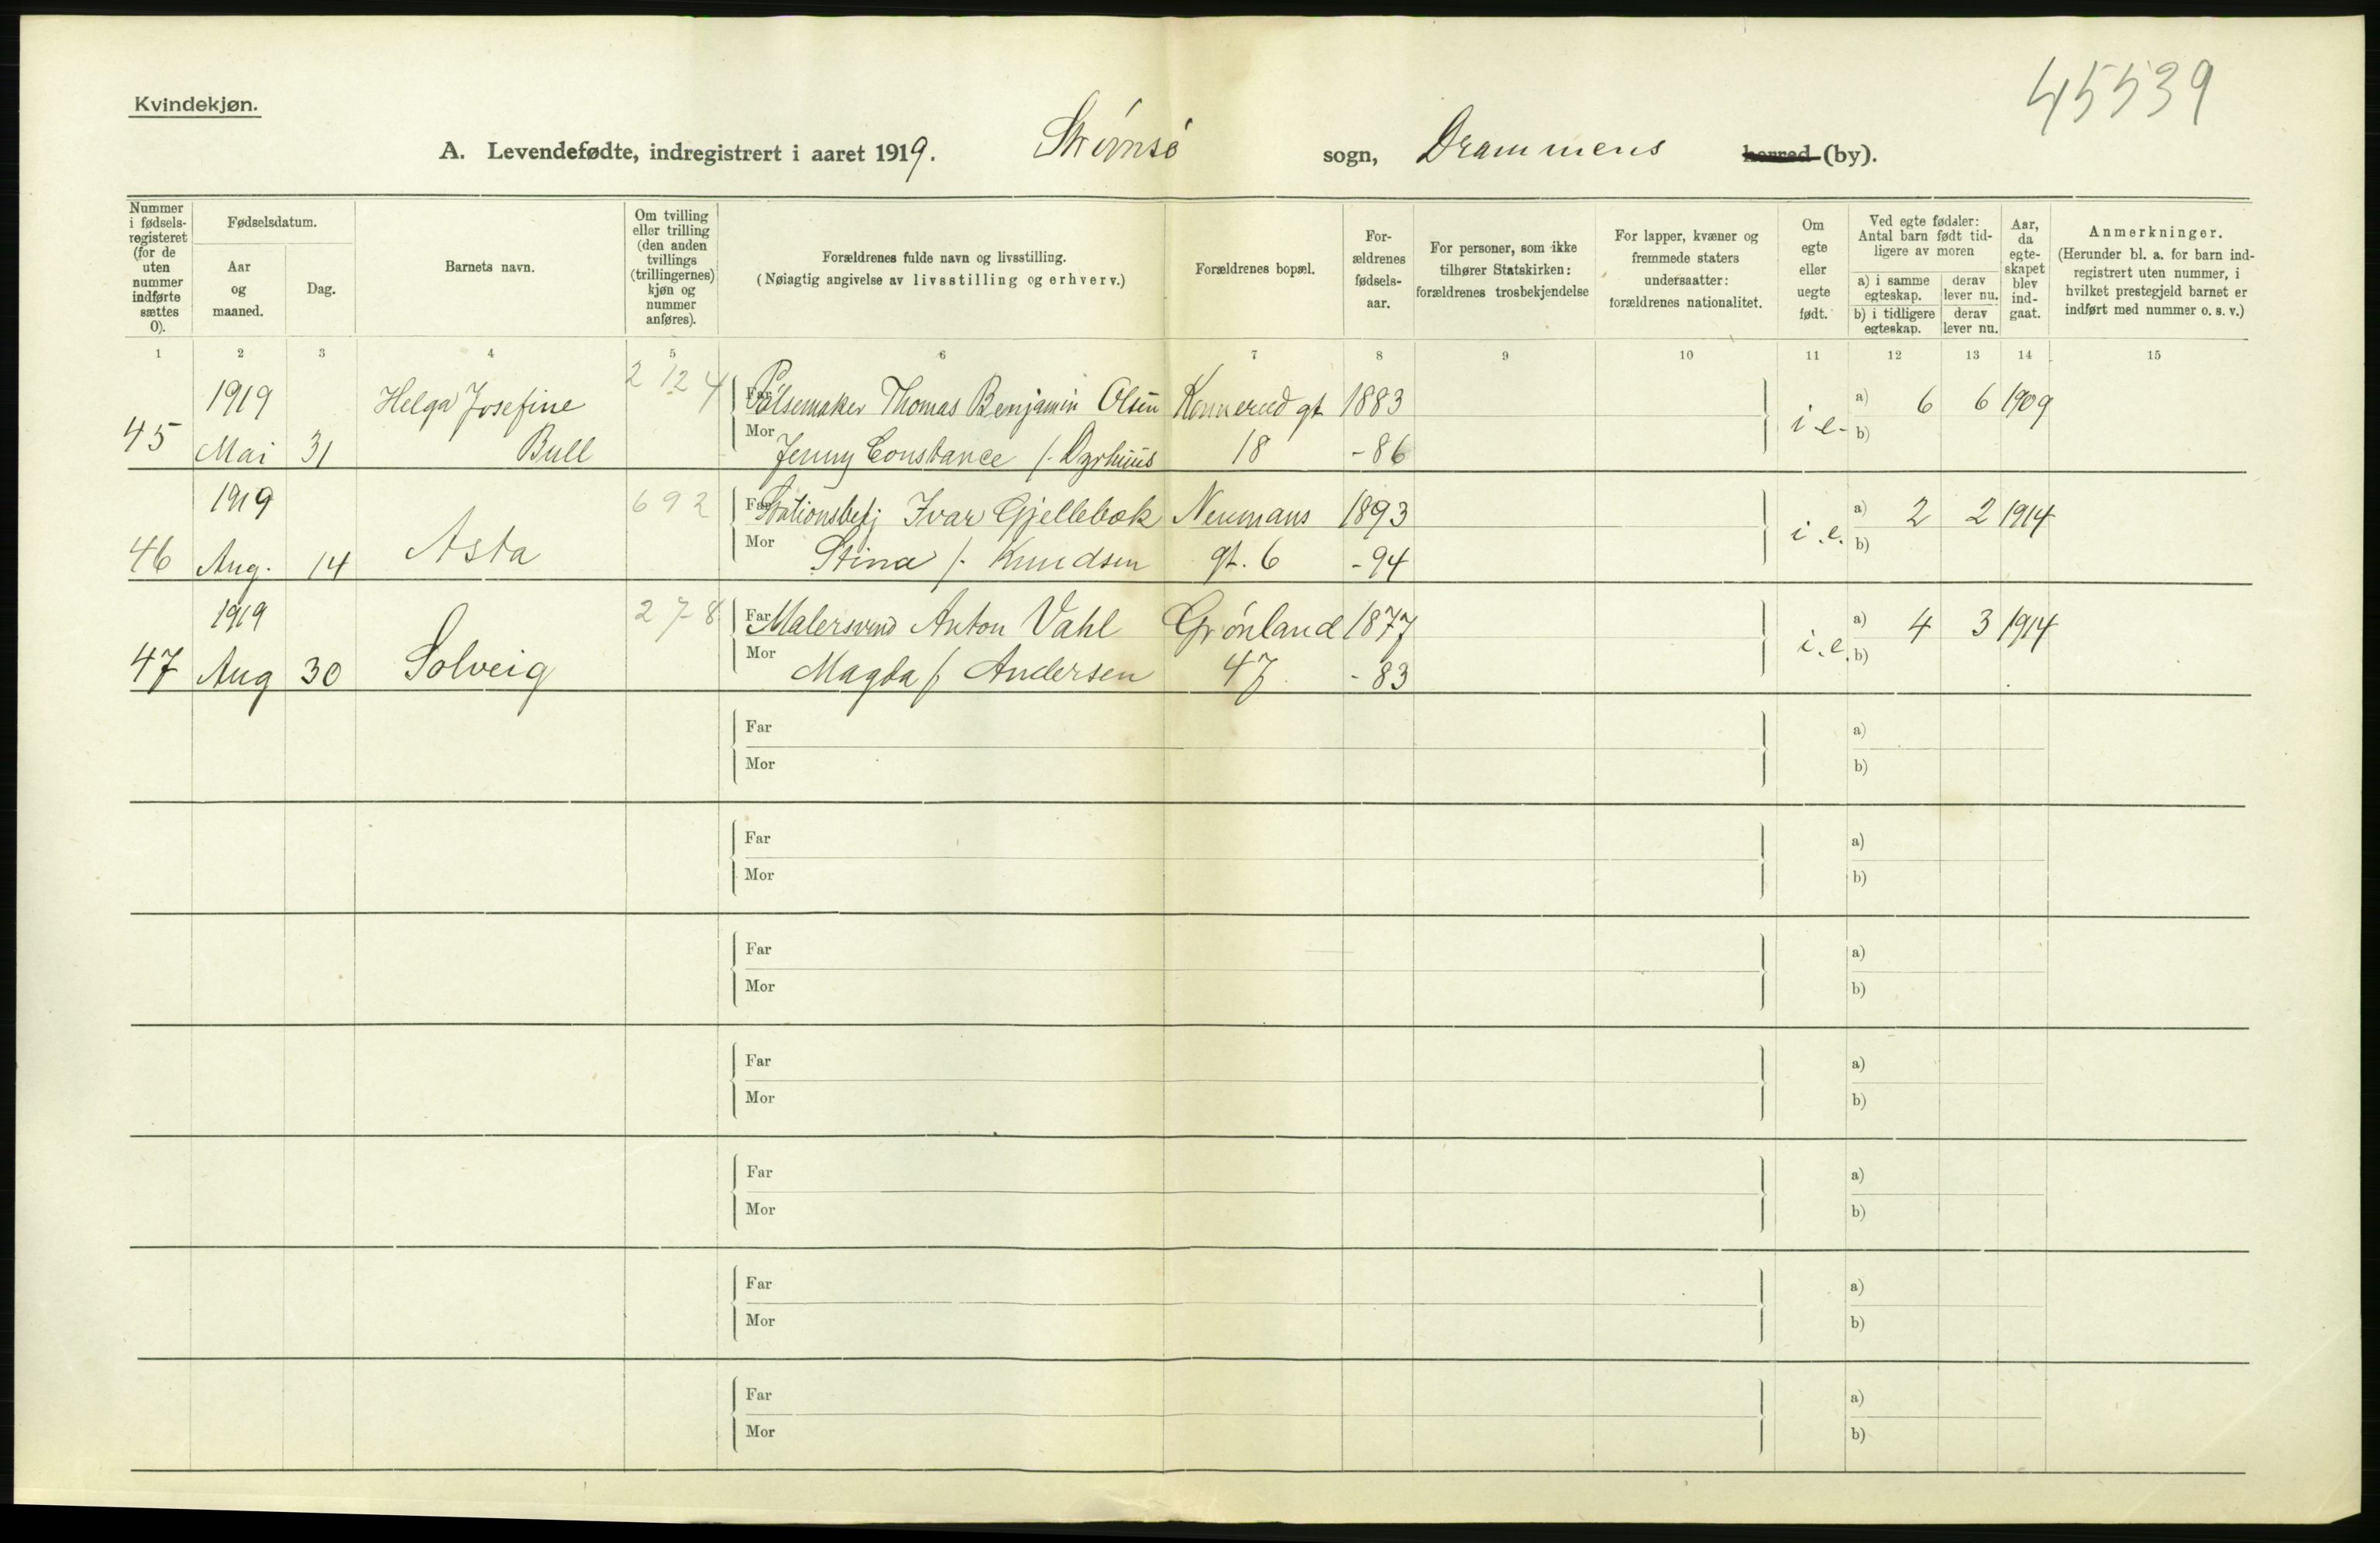 45539
Kvindekjøn.
A. Levendefødte, indregistrert i aaret 1919. Strømsø sogn, Drammens herred (by).
Nummer i fødsels-registeret (for de uten nummer indførte sættes 0).
Fødselsdatum.
Aar og maaned.
Dag.
Barnets navn.
Om tvilling eller trilling (den anden tvillings (trillingernes) kjøn og nummer anføres).
Forældrenes fulde navn og livsstilling.
(Nøiagtig angivelse av livsstilling og erhverv.)
Forældrenes bopæl.
For-ældrenes fødsels-aar.
For personer, som ikke tilhører Statskirken: forældrenes trosbekjendelse
For lapper, kvæner og fremmede staters undersaatter: forældrenes nationalitet.
Om egte eller uegte født.
Ved egte fødsler: Antal barn født tid-ligere av moren
a) i samme egteskap.
derav lever nu.
b) i tidligere egteskap.
derav lever nu.
Aar, da egte-skapet blev ind-gaat.
Anmerkninger.
(Herunder bl. a. for barn ind-registrert uten nummer, i hvilket prestegjeld barnet er indført med nummer o. s. v.)
1 2 3 4 5 6 7 8 9 10 11 12 13 14 15
1919 Helga Josefine 2 12 4 Far Pølsemaker Thomas Benjamin Olsen Konnerud gt 1883 a) 6 6 1909
45 Mai 31 Bull Mor Jenny Constance f. Dyrhuus 18 -86 i e. b)
1919 692 Far Stationsbetj Ivar Gjellebæk Neumans 1893 a) 2 2 1914
46 Aug. 14 Asta Mor Stina f. Knudsen gt. 6 -94 i.e. b)
1919 278 Far Malersvend Anton Vahl Grønland 1877 a) 4 3 1914
47 Aug 30 Solveig Mor Magda f Andersen 47 -83 i.e. b)
Far a)
Mor b)
Far a)
Mor b)
Far a)
Mor b)
Far a)
Mor b)
Far a)
Mor b)
Far a)
Mor b)
Far a)
Mor b)